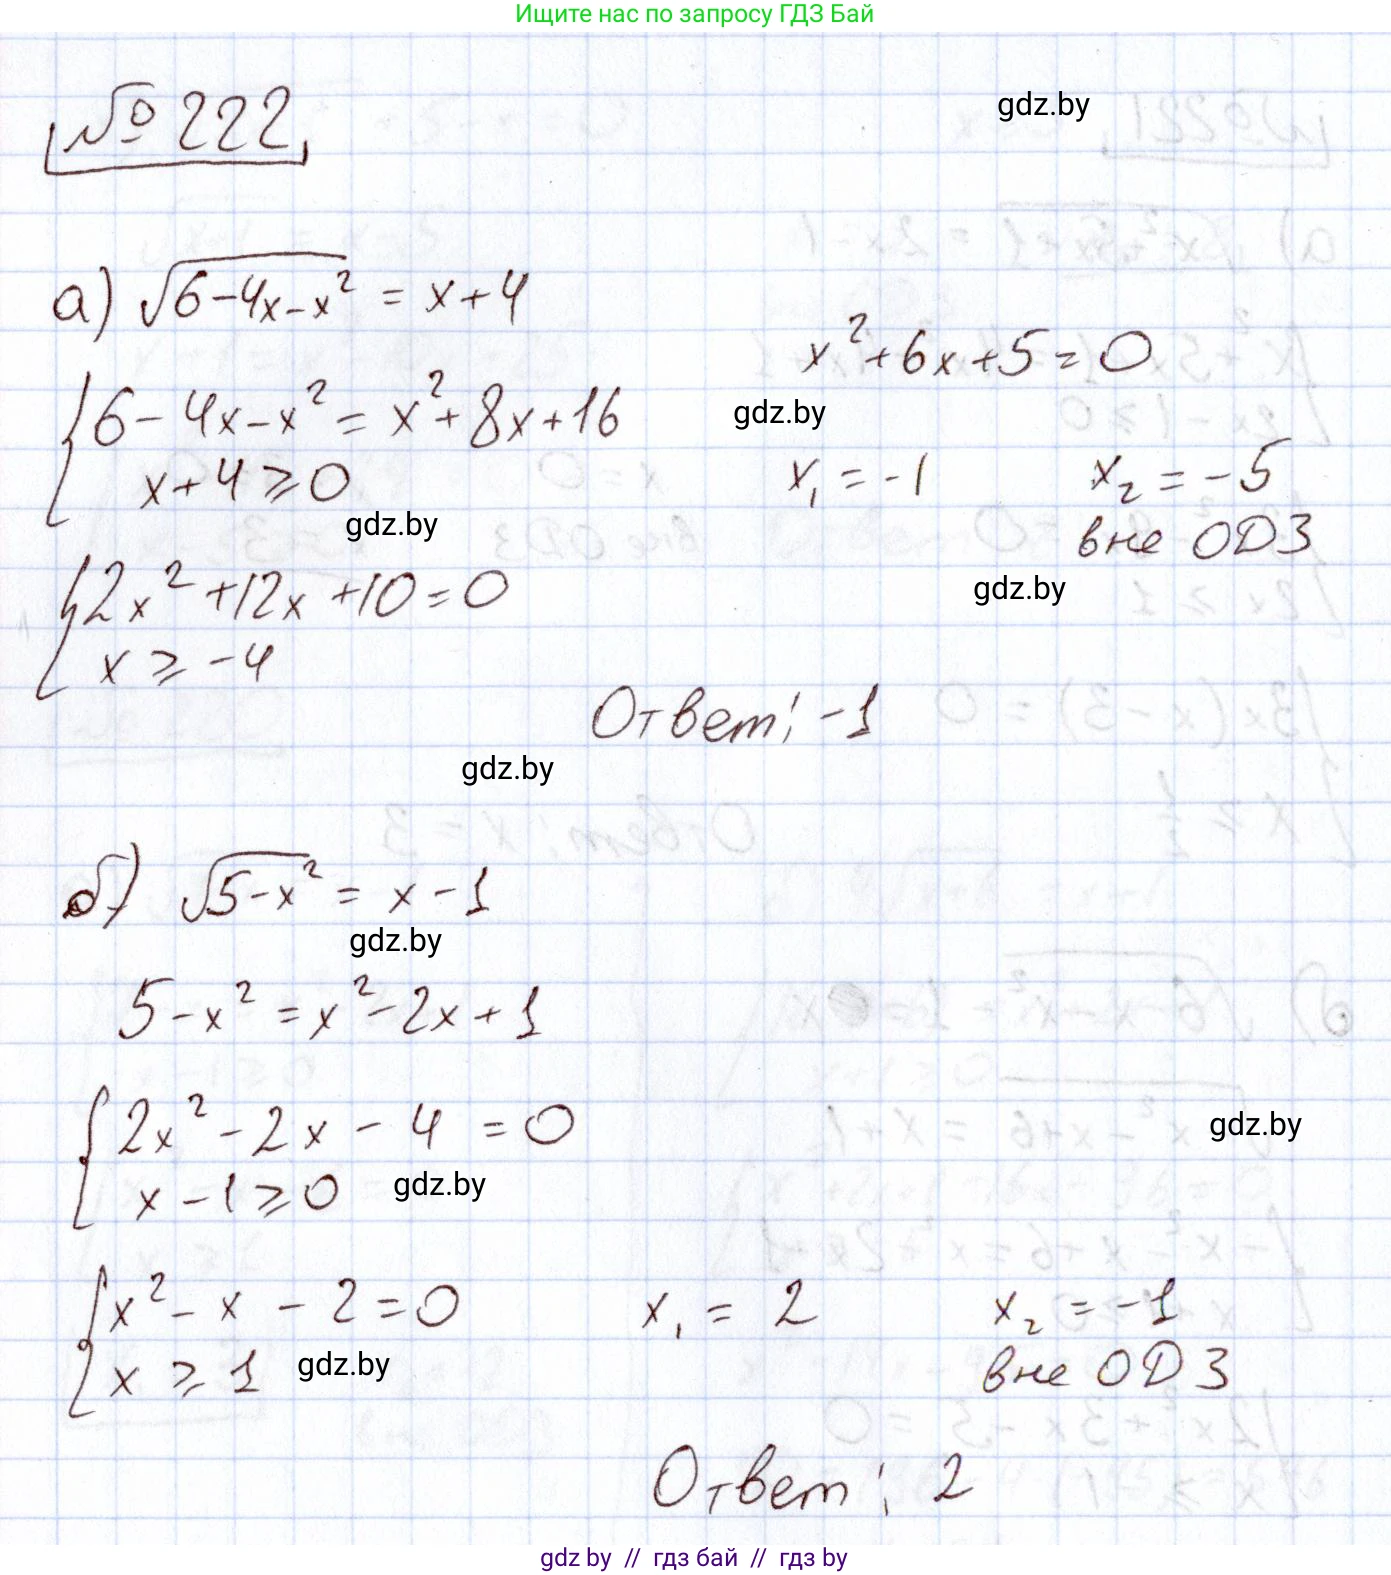 Ищите нас по запросу ГДЗ Бай
№ 222
gdz.by
а) √(6-4x-x²) = x+4
x²+6x+5=0
{6-4x-x² = x²+8x+16
gdz.by
x+4⩾0
x₁ = -1
x₂ = -5
gdz.by
вне ОДЗ
{2x²+12x+10=0
gdz.by
x ⩾ -4
Ответ: -1
gdz.by
б) √(5-x²) = x-1
gdz.by
5-x² = x²-2x+1
{2x²-2x-4=0
gdz.by
x-1⩾0
gdz.by
{x²-x-2=0
x₁ = 2
x₂ = -1
x ⩾ 1
gdz.by
вне ОДЗ
Ответ: 2
gdz by // гдз бай // гдз by